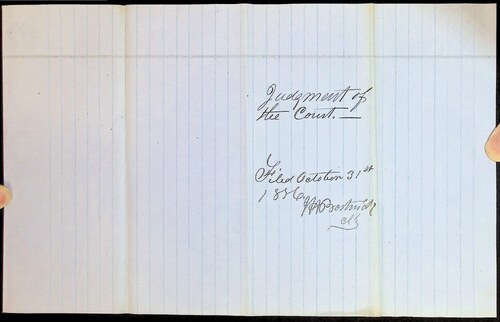 Judgment of
the Court.—
Filed October 31st
1886
Clk